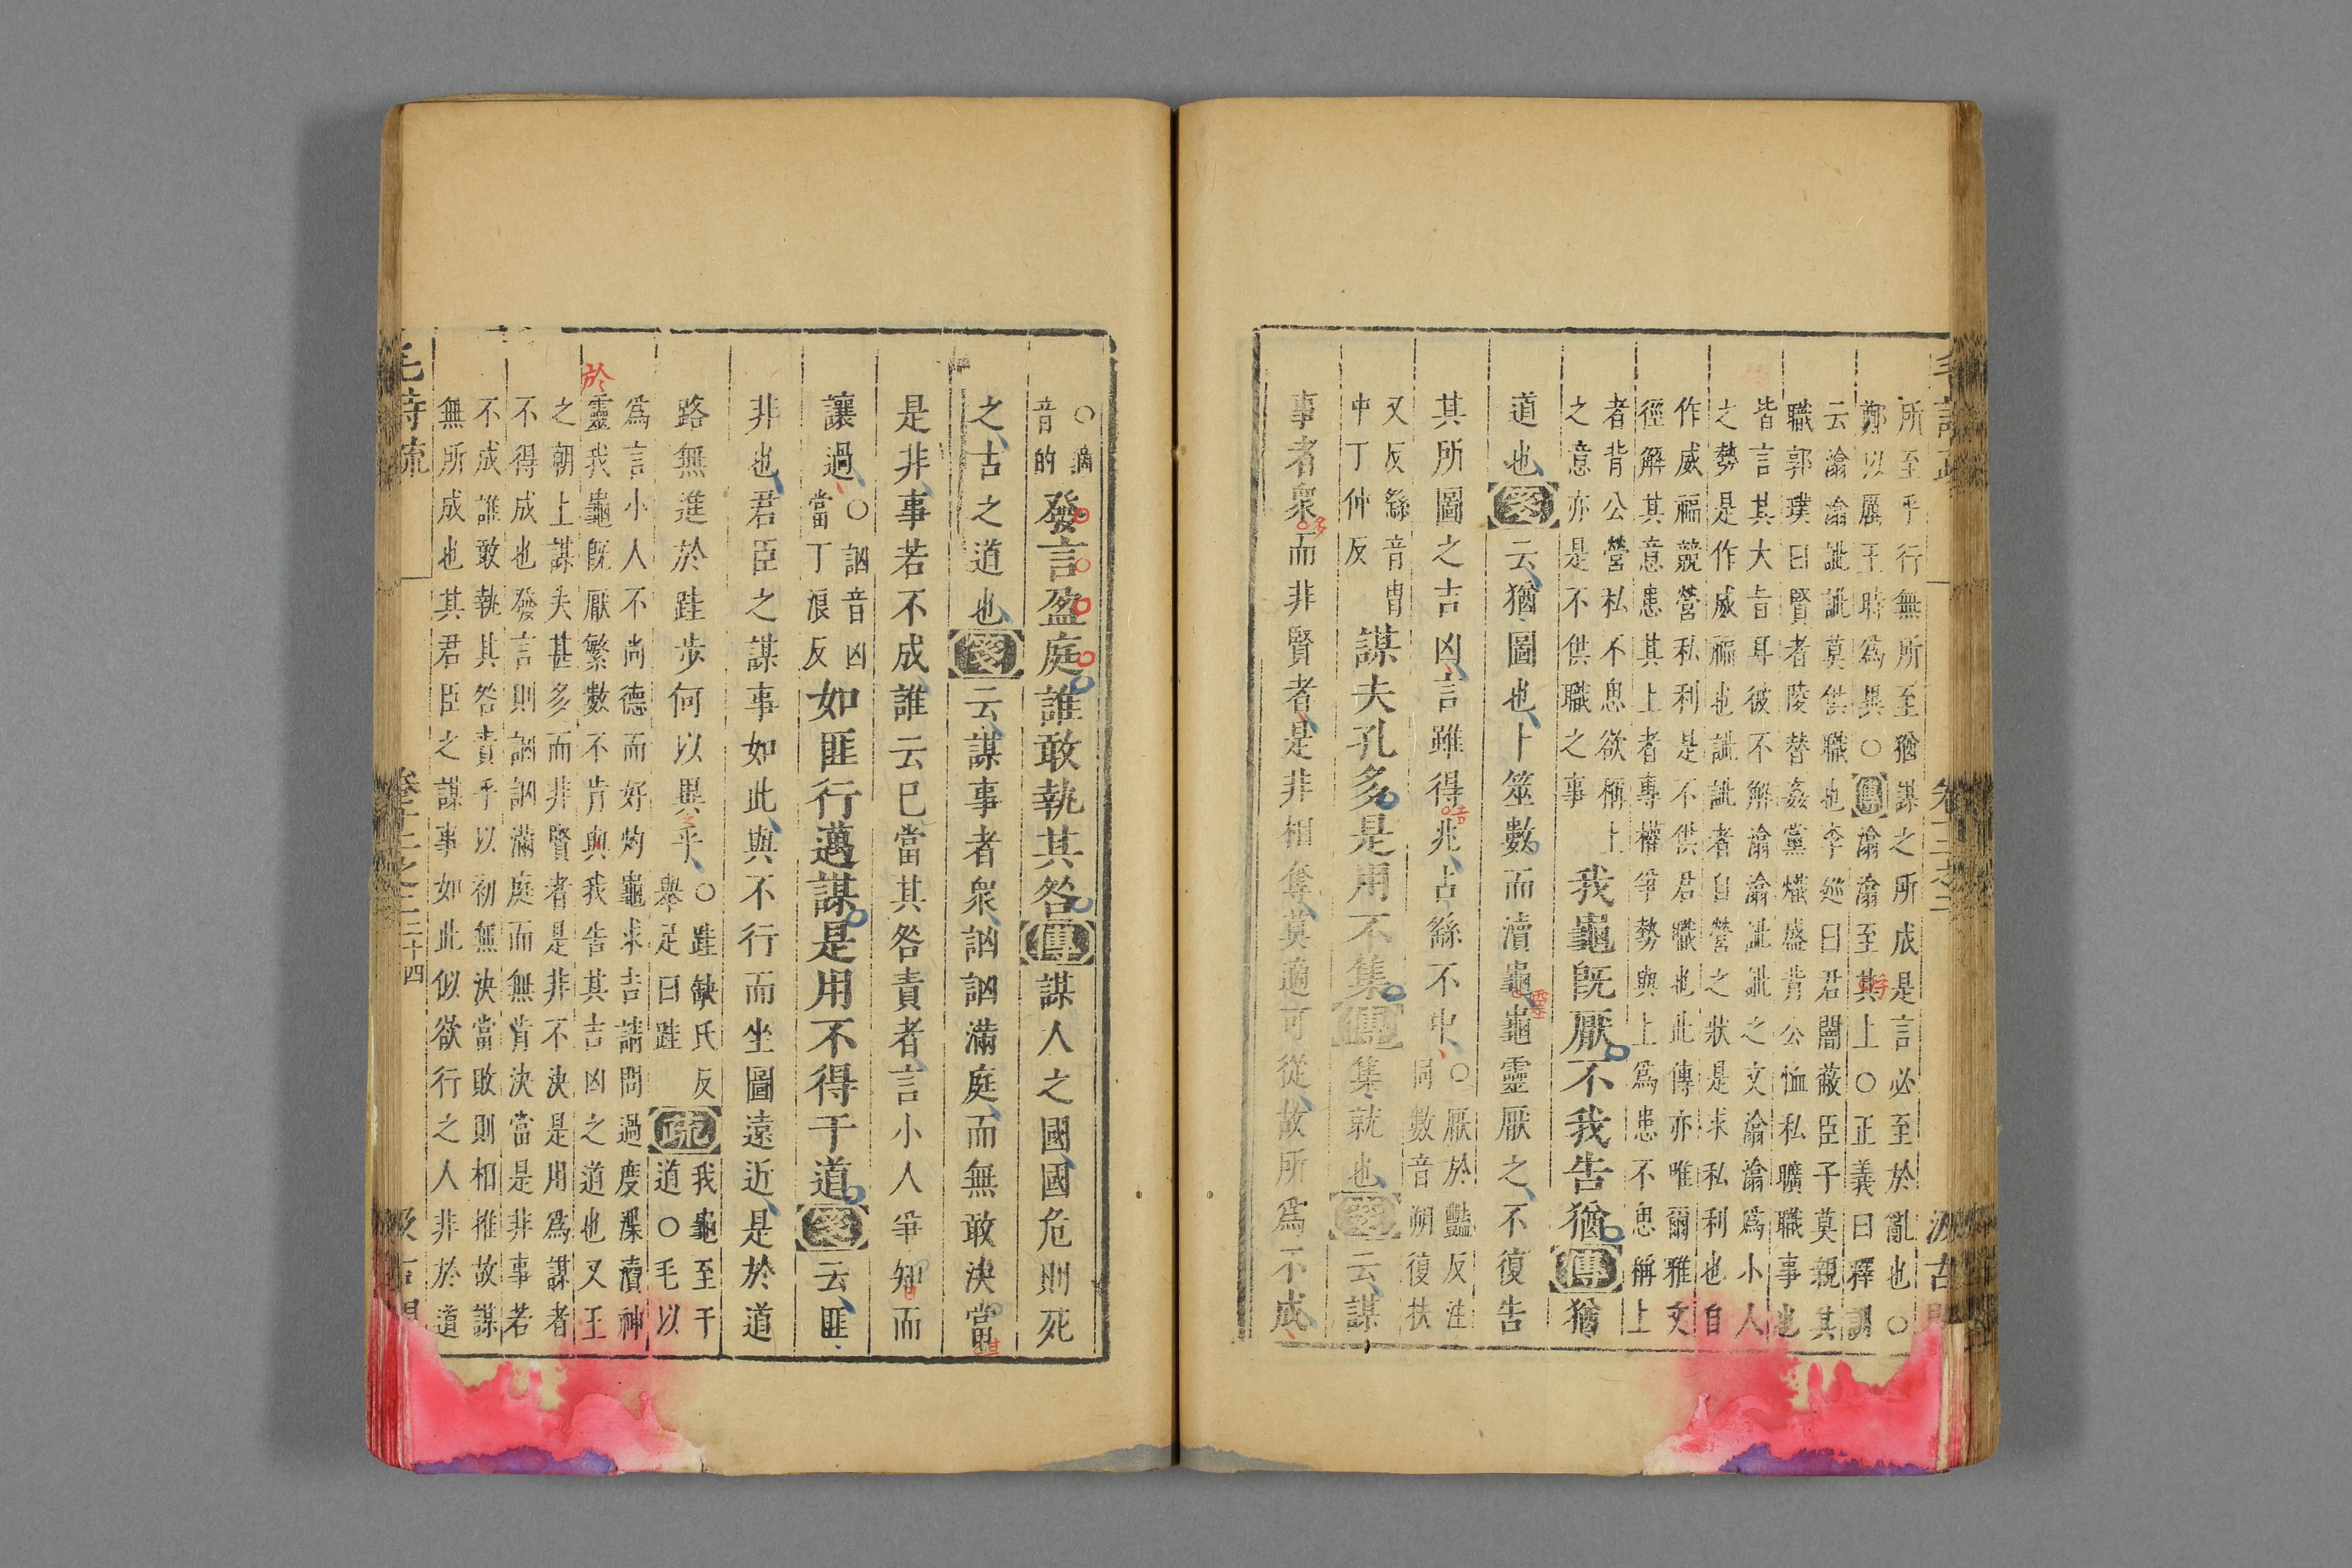 所至乎行無所至猶謀之所成是言必至於亂也○
鄭以厲王時爲異○傳潝潝至其上○正義曰釋訓
云潝潝訿訿莫供職也李巡曰君闇蔽臣子莫親其
職郭璞曰賢者陵替姦黨熾盛背公恤私曠職事也
皆言其大旨耳彼不解潝潝訿訿之文潝潝爲小人
之勢是作威福也訿訿者自營之狀是求私利也自
作威福競營私利是不供君職也此傳亦唯爾雅文
徑解其意患其上者專權爭勢與上爲患不思稱上
者背公營私不思欲稱上
之意亦是不供職之事
我龜旣厭不我告猶傳猶
道也箋云猶圖也卜筮數而瀆龜龜靈厭之不復告
其所圖之吉凶言雖得兆占繇不中○厭於豔反注
同數音朔復扶
又反繇音胄
中丁仲反
謀夫孔多是用不集傳集就也箋云謀
事者衆而非賢者是非相奪莫適可從故所爲不成
毛詩疏
卷十二之二
汲古閣
○謫
音的
發言盈庭誰敢執其咎傳謀人之國國危則死
之古之道也箋云謀事者衆訩訩滿庭而無敢決當
是非事若不成誰云已當其咎責者言小人爭知而
讓過○訩音凶
當丁浪反
如匪行邁謀是用不得于道箋云匪
非也君臣之謀事如此與不行而坐圖遠近是於道
路無進於跬步何以異乎○跬缺氏反
舉足曰跬
疏我龜至于
道○毛以
爲言小人不尚德而好灼龜求吉請問過度瀆神
靈我龜旣厭繁數不肯與我告其吉凶之道也又王
之朝上謀夫甚多而非賢者是非不決是用爲謀者
不得成也發言則訩訩滿庭而無肯決當是非事若
不成誰敢執其咎責乎以初無決當敗則相推故謀
無所成也其君臣之謀事如此似欲行之人非於道
毛詩疏
卷十二之二
二十四
汲古閣
於